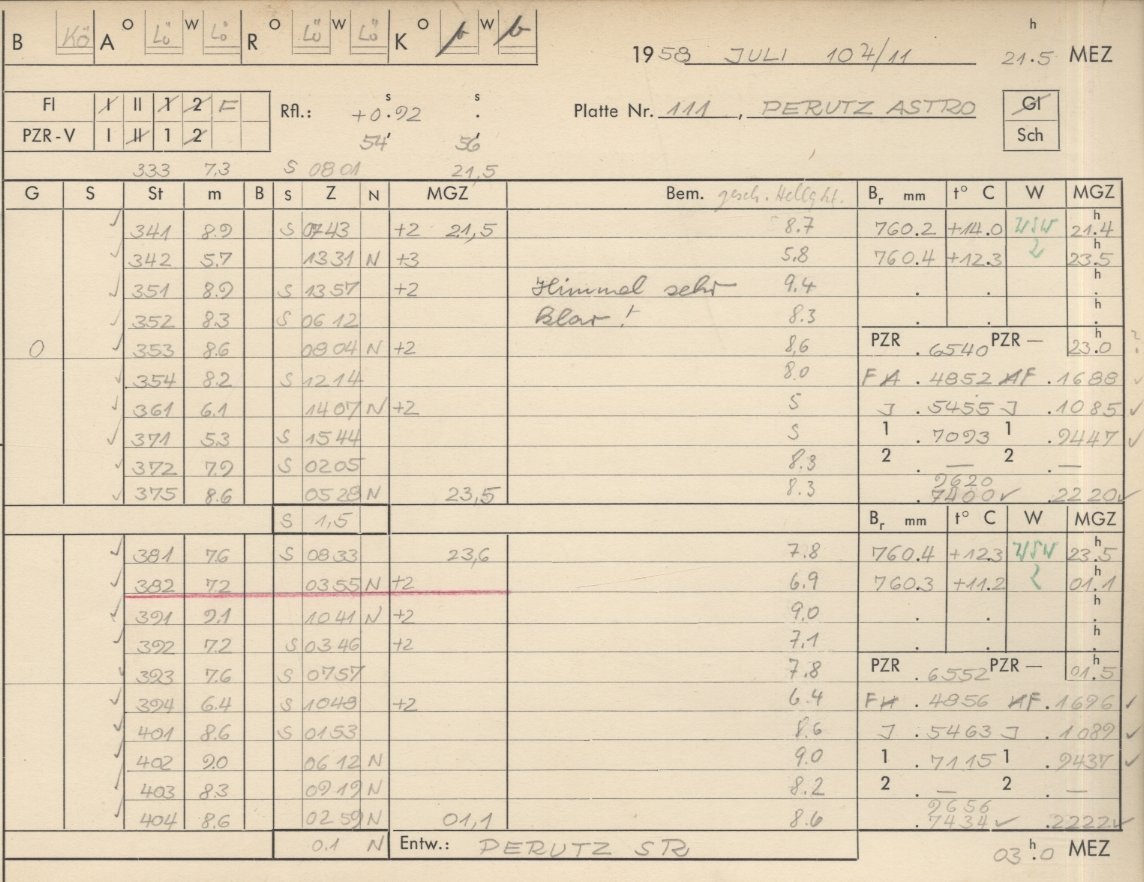 B Kö A O Lö W Lö R O Lü W Lö K O b W b 1958 JULI 10./11 21.5 h MEZ
FI I II 1 2 F Rfl.: +0.92 s . s Platte Nr. 111, PERUTZ ASTRO Gl
PZR-V I II 1 2 54' 56' Sch
333 7.3 S 08 01 21,5
G S St m B S Z N MGZ Bem. gesch. Hellgkt. Br mm t° C W MGZ
341 8.9 S 0743 +2 21,5 8.7 760.2 +14.0 WSW 21.4 h
342 5.7 1331 N +3 5.8 760.4 +12.3 2 23.5 h
351 8.9 S 1357 +2 Himmel sehr 9.4 . . . h
352 8.3 S 06 12 klar! 8.3 . . . h
0 353 8.6 0804 N +2 8,6 PZR .6540 PZR — 23.0 h ?
354 8.2 S 1214 8.0 F .4852 F .1688
361 6.1 1407 N +2 5 J .5455 J .1085 ✓
371 5.3 S 1544 5 1 .7093 1 .9447 ✓
372 7.9 S 0205 8.3 2 . — 2 . —
375 8.6 0528 N 23,5 8.3 2620
.7400 ✓ .2220 ✓
S 1,5 Br mm t° C W MGZ
381 7.6 S 0833 23,6 7.8 760.4 +12.3 WSW 23.5 h
382 7.2 0355 N +2 6.9 760.3 +11.2 2 01.1 h
391 9.1 1041 N +2 9,0 . . . h
392 7.2 S 0346 +2 7,1 . . . h
393 7.6 S 0757 7.8 PZR .6552 PZR — 01.5 h
394 6.4 S 1048 +2 6.4 F .4856 F .1696 ✓
401 8.6 S 0153 8.6 J .5463 J .1089 ✓
402 9.0 06 12 N 9.0 1 .7115 1 .9437 ✓
403 8.3 0919 N 8.2 2 . — 2 . —
404 8.6 02 59 N 01,1 8.6 2656
.7434 ✓ .2222 ✓
0.1 N Entw.: PERUTZ SR 03 h.0 MEZ